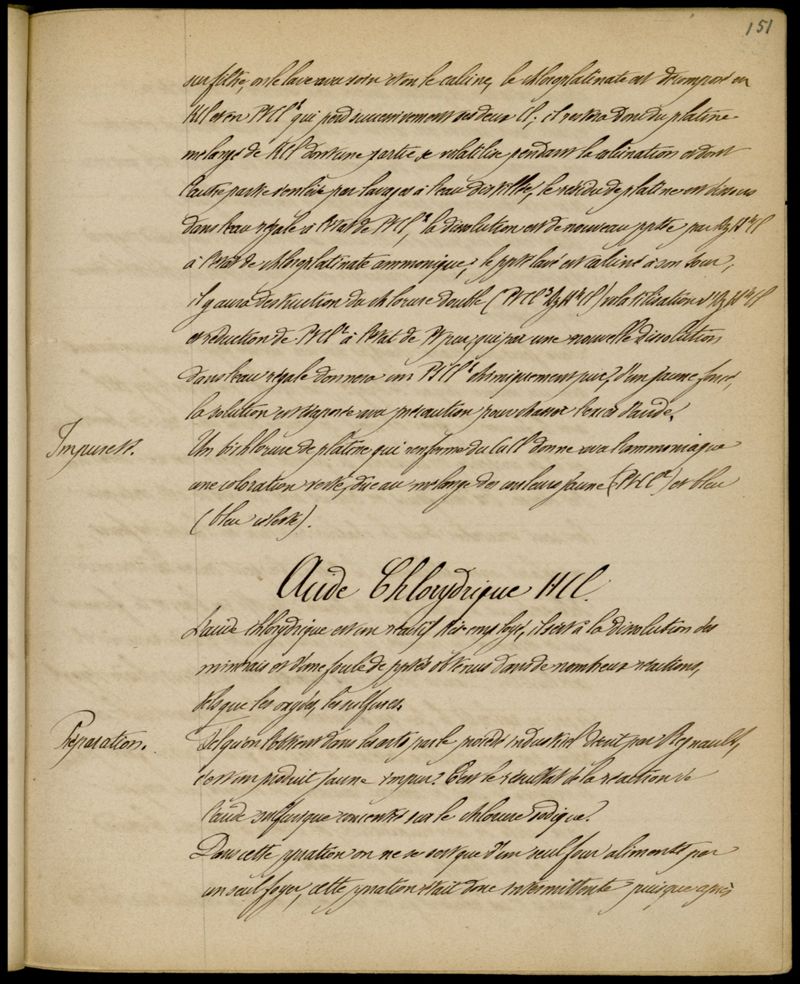 151
sur filtre, on le lave avec soin et on le calcine, le chloroplatinate est décomposé en
KCl et en PtCl² qui perd successivement ses deux Cl; il restera donc du platine
mélangé de KCl dont une partie se volatilise pendant la calcination et dont
l'autre partie s'enlève par lavages à l'eau distillée, le résidu de platine est dissous
dans l'eau régale à l'état de PtCl², la dissolution est de nouveau pptée par AzH⁴Cl
à l'état de chloroplatinate ammonique; le ppté lavé est calciné à son tour,
il y aura destruction du chlorure double (PtCl² AzH⁴Cl) volatilisation d'AzH⁴Cl
et réduction de PtCl² à l'état de Pt pur, qui par une nouvelle dissolution
dans l'eau régale donnera un PtCl² chimiquement pur, d'un jaune foncé,
la solution est évaporée avec précaution pour chasser l'excès d'acide.
Impuretés.
Un bichlorure de platine qui renferme du CuCl donne avec l'ammoniaque
une coloration verte, due au mélange des couleurs jaune (PtCl²) et bleu
(bleu céleste).
Acide Chlorydrique HCl.
L'acide chlorydrique est un réactif très employé, il sert à la dissolution des
minerais et d'une foule de pptés obtenus dans de nombreux réactions,
tels que les oxydes, les sulfures.
Préparation.
Tel qu'on l'obtient dans les arts par le procédé industriel décrit par Regnault,
c'est un produit jaune impur. C'est le résultat de la réaction de
l'acide sulfurique concentré sur le chlorure sodique.
Dans cette pration on ne se sert que d'un seul four alimenté par
un seul foyer, cette pration était donc intermittente puisque après